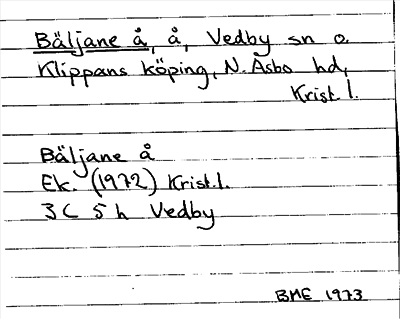 Bäljane å, å, Vedby sn o.
Klippans köping, N. Åsbo hd,
Krist l.
Bäljane å
Ek. (1972) Krist.l.
3C 5h Vedby
BME 1973